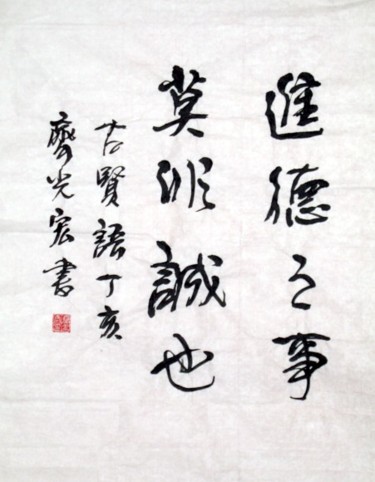 進德之事
莫非誠也
古賢語丁亥
齊光宏書